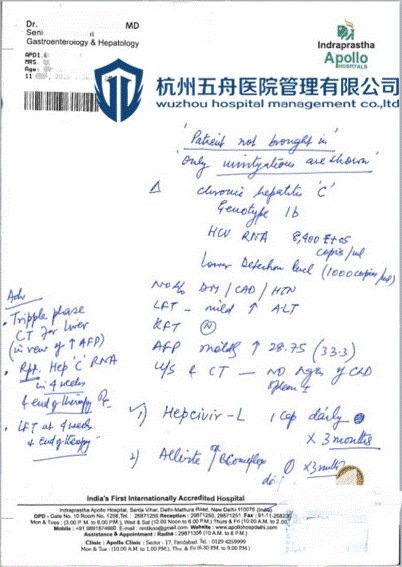 Dr. MD
Gastroenterology & Hepatology
Indraprastha
Apollo
HOSPITALS
MRS.
杭州五舟医院管理有限公司
wuzhou hospital management co.,ltd
'Patient not brought in'
'only investigations are shown'
Δ chronic hepatitis 'C'
Genotype 1b
HCV RNA 8,900 E+05
copies/ml
Lower Detection level (1000 copies/ml)
No H/o DM / CAD / HTN
LFT - mild ↑ ALT
KFT (N)
AFP mildly ↑ 28.75 (33.3)
U/S & CT - NO signs of CLD
Adv
• Tripple phase
CT for liver
(in view of ↑ AFP)
• Rpt. Hep 'C' RNA
in 4 weeks
& end of therapy
• LFT at 4 weeks
& end of therapy
1) Hepcivir-L 1 cap daily
x 3 months
2)
x 3 months
India's First Internationally Accredited Hospital
Indraprastha Apollo Hospital, Sarita Vihar, Delhi-Mathura Road, New Delhi-110076 (India)
OPD - Gate No. 10 Room No. 1256, Tel.: 26871256 Reception : 29871250, 29871251 Fax : 91-11-
Mon & Tues : (3.00 P.M. to 6.00 P.M.), Wed & Sat (12.00 Noon to 6.00 P.M.) Thurs & Fri (10.00 A.M. to 2.00
Mobile : +91 9891874660 E-mail : Website : www.apollohospdelhi.com
Assistance & Appointment : Radha : 29871356 (10.00 A.M. to 6 P.M.)
Clinic : Apollo Clinic : Sector - 17, Faridabad, Tel.: 0129 4259999
Mon & Tues. (10.00 A.M. to 1.00 P.M.), Thu & Fri (6.30 P.M. to 9.00 P.M.)